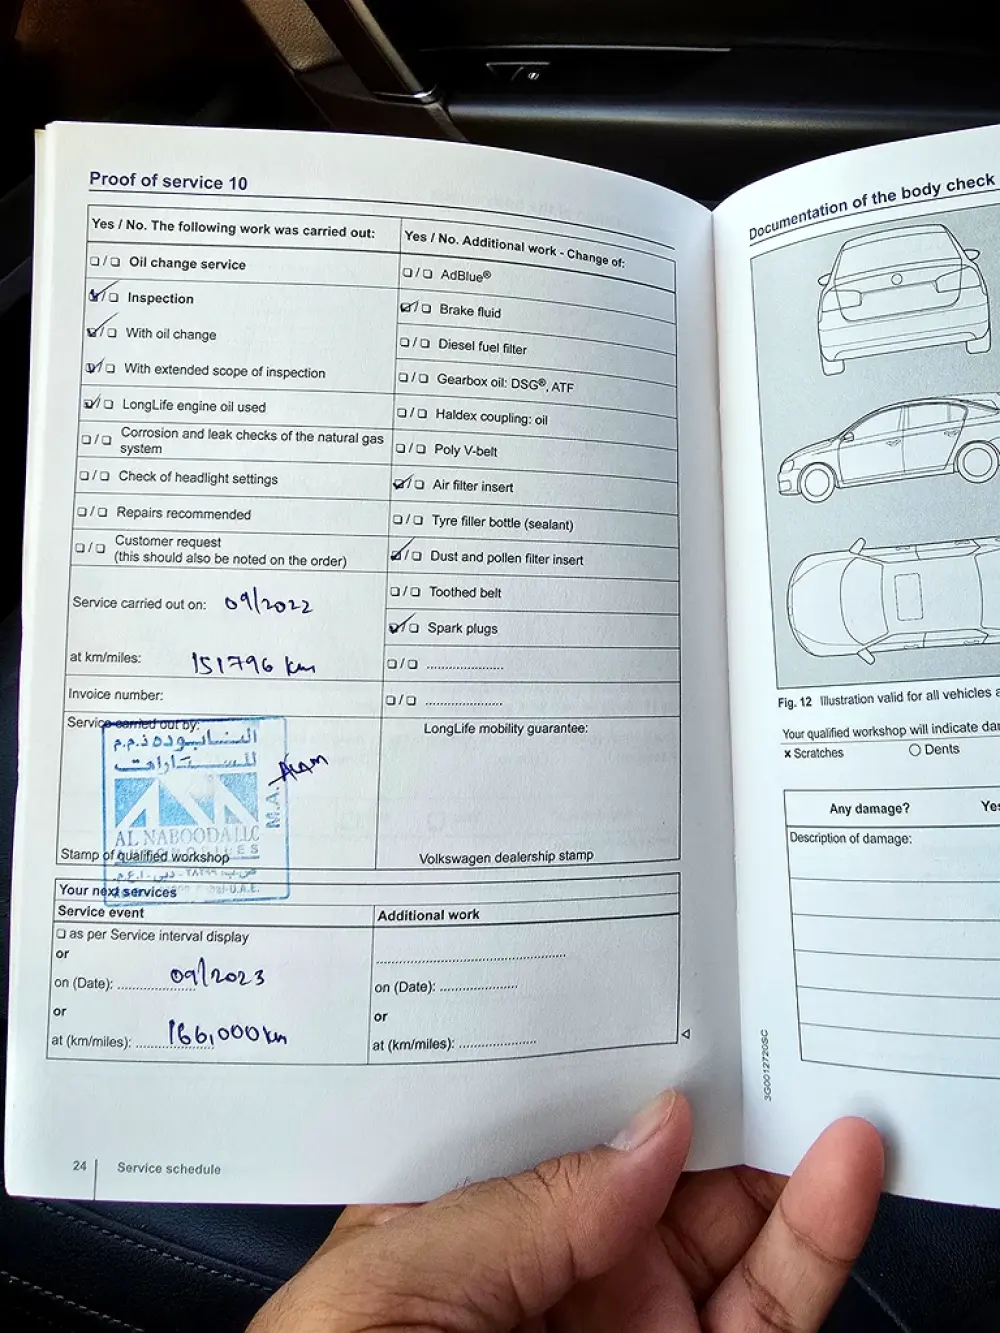 Proof of service 10
Yes / No. The following work was carried out:
❏ / ❏ Oil change service
☑ / ❏ Inspection
☑ / ❏ With oil change
☑ / ❏ With extended scope of inspection
☑ / ❏ LongLife engine oil used
❏ / ❏ Corrosion and leak checks of the natural gas
system
❏ / ❏ Check of headlight settings
❏ / ❏ Repairs recommended
❏ / ❏ Customer request
(this should also be noted on the order)
Service carried out on: 09/2022
at km/miles: 151796 km
Invoice number:
Service carried out by:
النابوده ذ.م.م
للسيارات
AL NABOODA LLC
M.A. Alam
Stamp of qualified workshop
U.A.E.
Yes / No. Additional work - Change of:
❏ / ❏ AdBlue®
☑ / ❏ Brake fluid
❏ / ❏ Diesel fuel filter
❏ / ❏ Gearbox oil: DSG®, ATF
❏ / ❏ Haldex coupling: oil
❏ / ❏ Poly V-belt
☑ / ❏ Air filter insert
❏ / ❏ Tyre filler bottle (sealant)
☑ / ❏ Dust and pollen filter insert
❏ / ❏ Toothed belt
☑ / ❏ Spark plugs
❏ / ❏ ......................
❏ / ❏ ......................
LongLife mobility guarantee:
Volkswagen dealership stamp
Your next services
Service event
❏ as per Service interval display
or
on (Date): 09/2023
or
at (km/miles): 166,000 km
Additional work
on (Date): ......................
or
at (km/miles): ......................
24 Service schedule
Documentation of the body check
Fig. 12 Illustration valid for all vehicles
Your qualified workshop will indicate
x Scratches ○ Dents
Any damage? Yes
Description of damage:
3G0012720SC